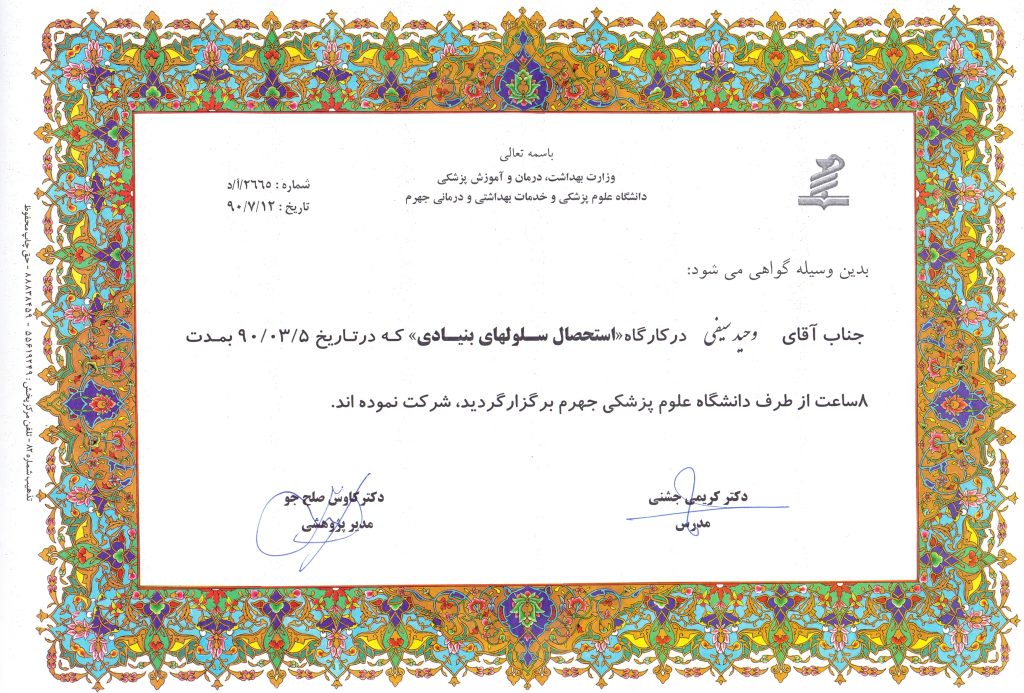 باسمه تعالی
وزارت بهداشت، درمان و آموزش پزشکی
دانشگاه علوم پزشکی و خدمات بهداشتی و درمانی جهرم
شماره : ۲۶۶۵/أ/د
تاریخ : ۹۰/۷/۱۲
بدین وسیله گواهی می شود:
جناب آقای وحید سیفی درکارگاه «استحصال سلولهای بنیادی» که درتاریخ ۹۰/۰۳/۵ بمدت
۸ساعت از طرف دانشگاه علوم پزشکی جهرم برگزارگردید، شرکت نموده اند.
دکتر کریمی جشنی
مدرس
دکترکاوس صلح جو
مدیر پژوهشی
تذهیب شماره ۸۲ - تلفن مرکز پخش : ۵۵۶۱۹۲۴۹ - ۸۸۸۳۸۴۵۹ - حق چاپ محفوظ